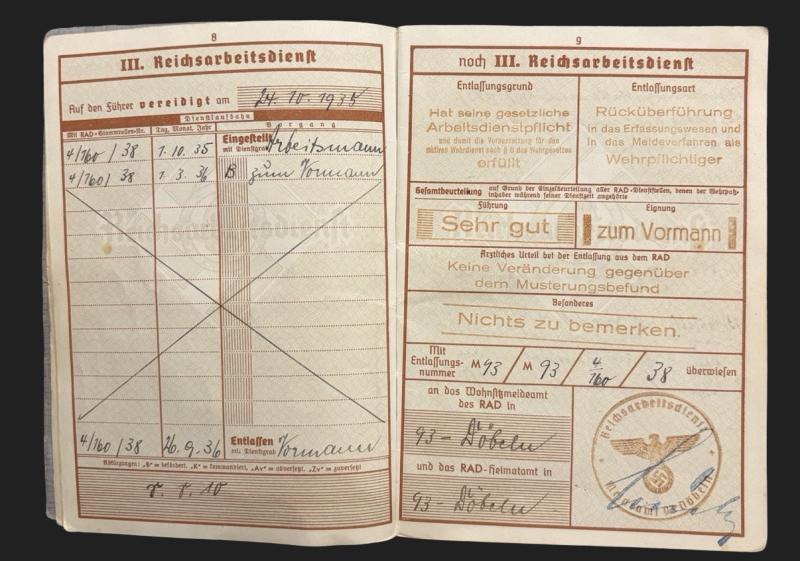 8
III. Reichsarbeitsdienst
Auf den Führer vereidigt am 24.10.1935
Dienstlaufbahn
Mit RAD-Stammrollen-Nr. Tag, Monat, Jahr Vorgang
4/160/38 1.10.35 Eingestellt mit Dienstgrad: Arbeitsmann
4/160/38 1.3.36 B zum Vormann
4/160/38 26.9.36 Entlassen mit Dienstgrad Vormann
Abkürzungen: „B“ = befördert, „K“ = kommandiert, „Av“ = abversetzt, „Zv“ = zuversetzt
9
noch III. Reichsarbeitsdienst
Entlassungsgrund
Hat seine gesetzliche
Arbeitsdienstpflicht
und damit die Voraussetzung für den
aktiven Wehrdienst nach § 8 des Wehrgesetzes
erfüllt
Entlassungsart
Rücküberführung
in das Erfassungswesen und
in das Meldeverfahren als
Wehrpflichtiger
Gesamtbeurteilung auf Grund der Einzelbeurteilung aller RAD-Dienststellen, denen der Wehrpaß-
inhaber während seiner Dienstzeit angehörte
Führung
Sehr gut
Eignung
zum Vormann
Ärztliches Urteil bei der Entlassung aus dem RAD
Keine Veränderung gegenüber
dem Musterungsbefund
Besonderes
Nichts zu bemerken.
Mit
Entlassungs-
nummer M 93 / M 93 / 4/160 / 38 überwiesen
an das Wohnsitzmeldeamt
des RAD in
93 - Döbeln
und das RAD-Heimatamt in
93 - Döbeln
Reichsarbeitsdienst